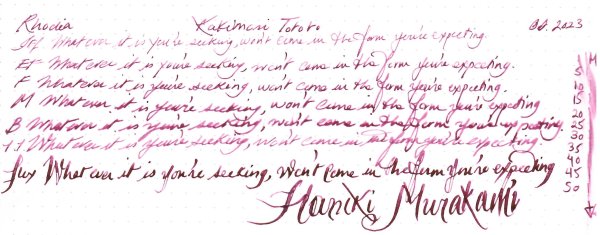 Rhodia Kakimori Tototo Oct. 2023
What ever it is you're seeking, won't come in the form you're expecting.
EF What ever it is you're seeking, won't come in the form you're expecting.
F What ever it is you're seeking, won't come in the form you're expecting.
M What ever it is you're seeking, won't come in the form you're expecting
B What ever it is you're seeking, won't come in the form you're expecting.
1.1 What ever it is you're seeking, won't come in the form you're expecting.
flex What ever it is you're seeking, won't come in the form you're expecting
Haruki Murakami
5
10
15
20
25
30
35
40
45
50